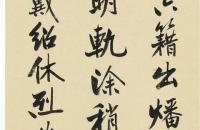 籍出燔
軌塗稍
戴紹休烈